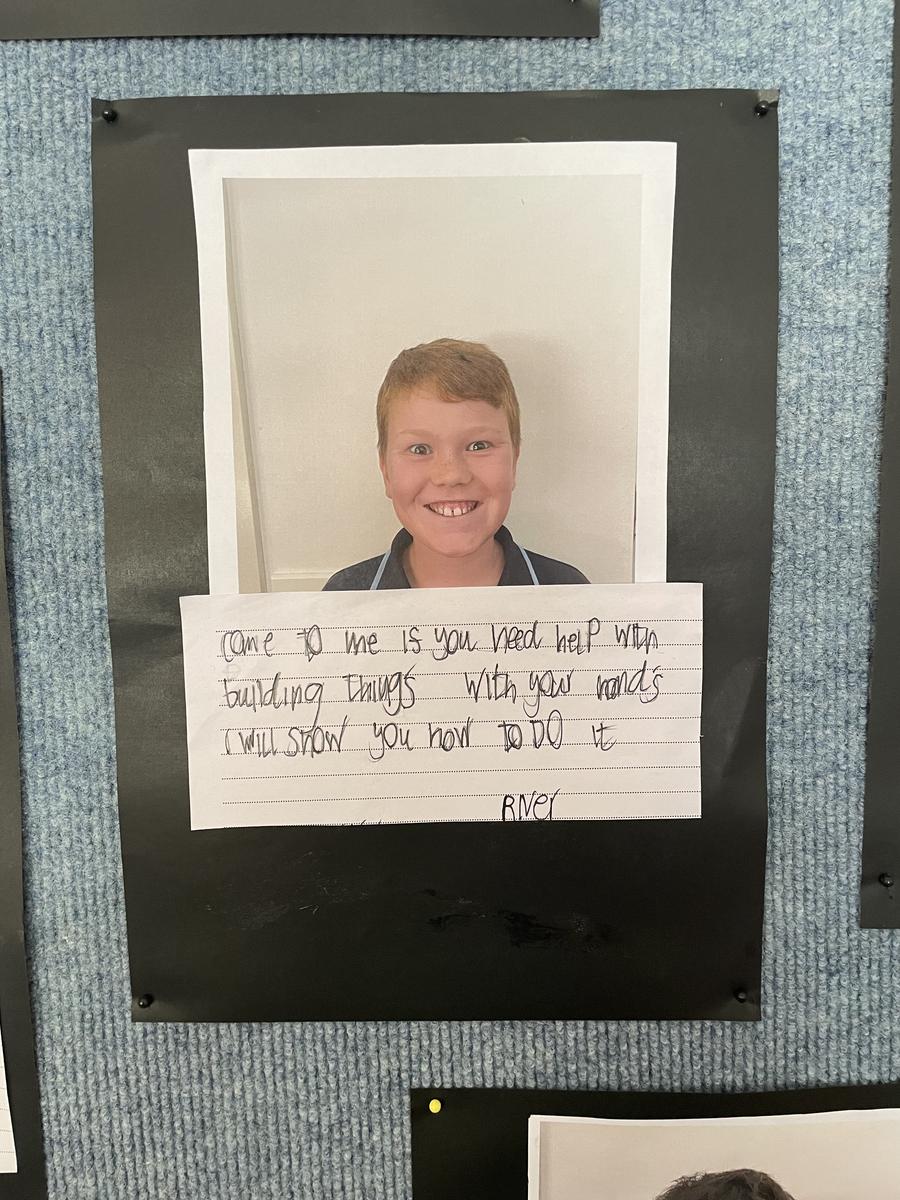 come to me if you need help with
building things with your hands
I will show you how to DO it
River